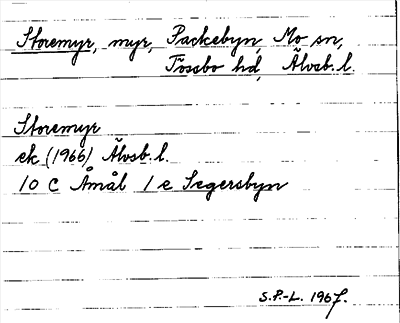 Storemyr, myr, Packebyn, Mo sn,
Tössbo hd, Älvsb. l.
Storemyr
ek (1966) Älvsb. l.
10 C Åmål 1 e Segersbyn
S.P.-L. 1967.